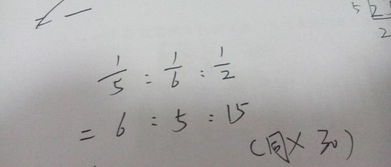 1/5 : 1/6 : 1/2
= 6 : 5 : 15
(同×30)